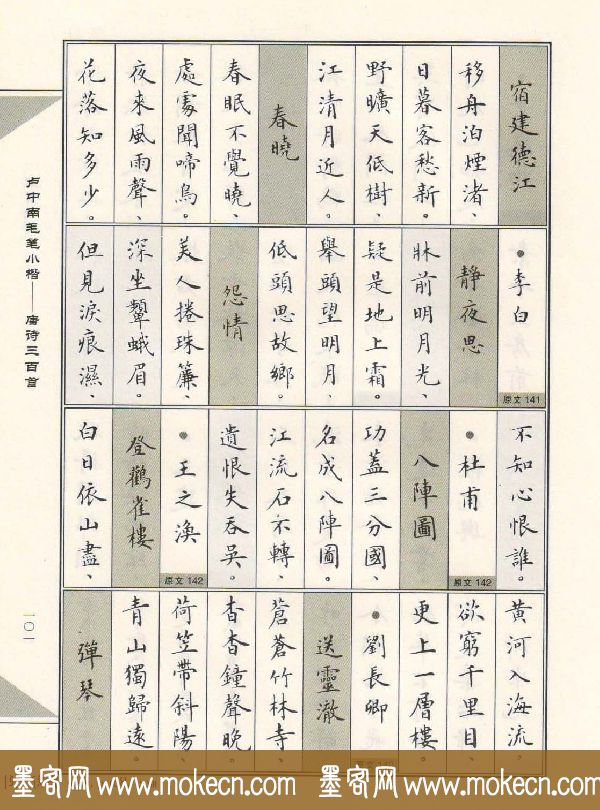 宿建德江
移舟泊煙渚、
日暮客愁新。
野曠天低樹、
江清月近人。
春曉
春眠不覺曉、
處處聞啼鳥。
夜來風雨聲、
花落知多少。
●李白
原文 141
靜夜思
牀前明月光、
疑是地上霜。
舉頭望明月、
低頭思故鄉。
怨情
美人捲珠簾、
深坐顰蛾眉。
但見淚痕濕、
不知心恨誰。
●杜甫
原文 142
八陣圖
功蓋三分國、
名成八陣圖。
江流石不轉、
遺恨失吞吳。
●王之渙
原文 142
登鸛雀樓
白日依山盡、
黃河入海流。
欲窮千里目、
更上一層樓。
●劉長卿
送靈澈
蒼蒼竹林寺、
杳杳鐘聲晚。
荷笠帶斜陽、
青山獨歸遠。
彈琴
卢中南毛笔小楷——唐诗三百首
一〇一
墨客网 www.mokecn.com 墨客网 www.mokecn.com